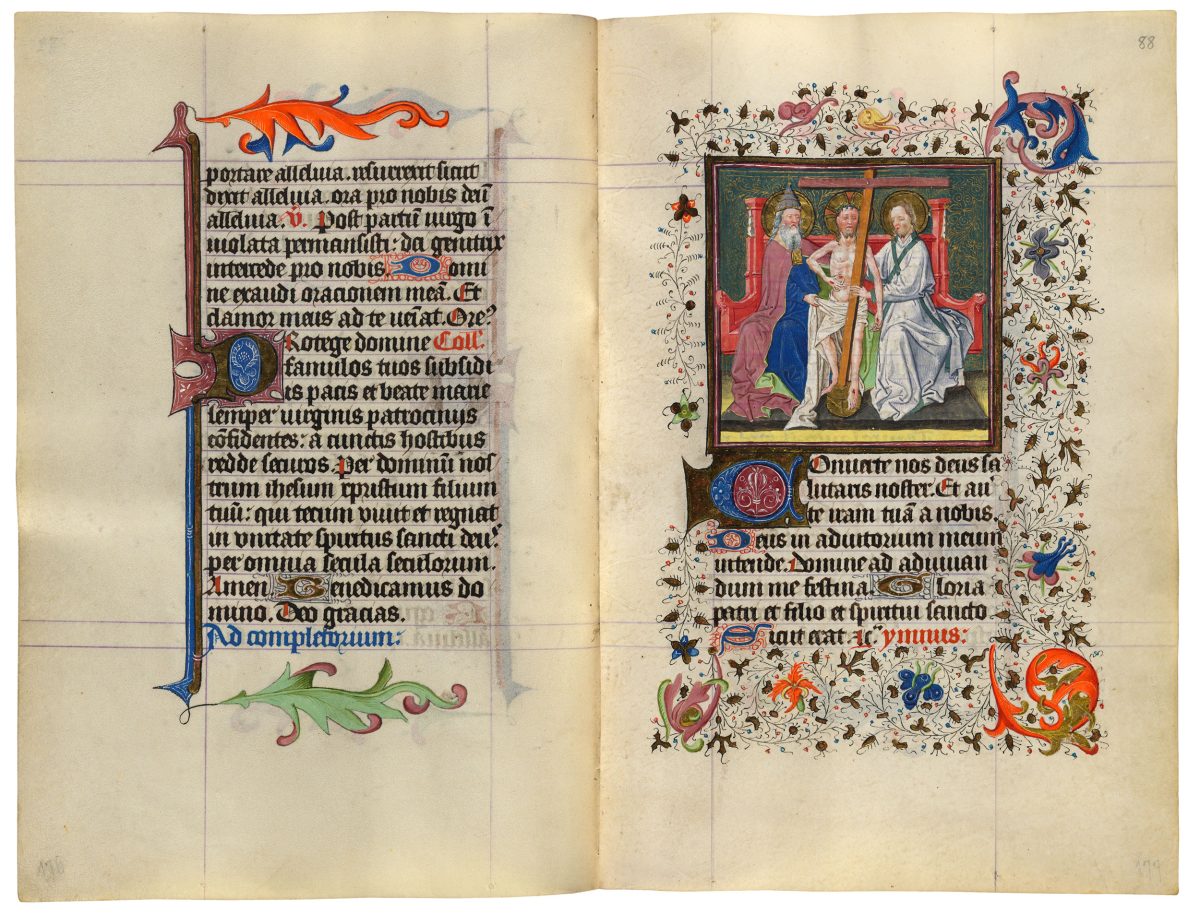 portare alleluia. resurrexit sicut
dixit alleluia. ora pro nobis deū
alleluia. V̄. Post partū uirgo ī
uiolata permansisti: dei genitrix
intercede pro nobis. Domi
ne exaudi oracionem meā. Et
clamor meus ad te ueīat. Oreꝰ
Protege domine Coll.
famulos tuos subsidi
is pacis et beate marie
semper uirginis patrocinijs
cōfidentes: a cunctis hostibus
redde securos. Per dominū nos
trum ihesum xpristum filium
tuū: qui tecum uiuit et regnat
in unitate spiritus sancti deuꝰ.
per omnia secula seculorum.
Amen Benedicamus do
mino. Deo gracias.
Ad completorium:
88
Conuerte nos deus sa
lutaris noster. Et au͛
te iram tuā a nobis.
Deus in adiutorium meum
intende. Domine ad adiuuan
dum me festina. Gloria
patri et filio et spiritui sancto
Sicut erat. ymnus: